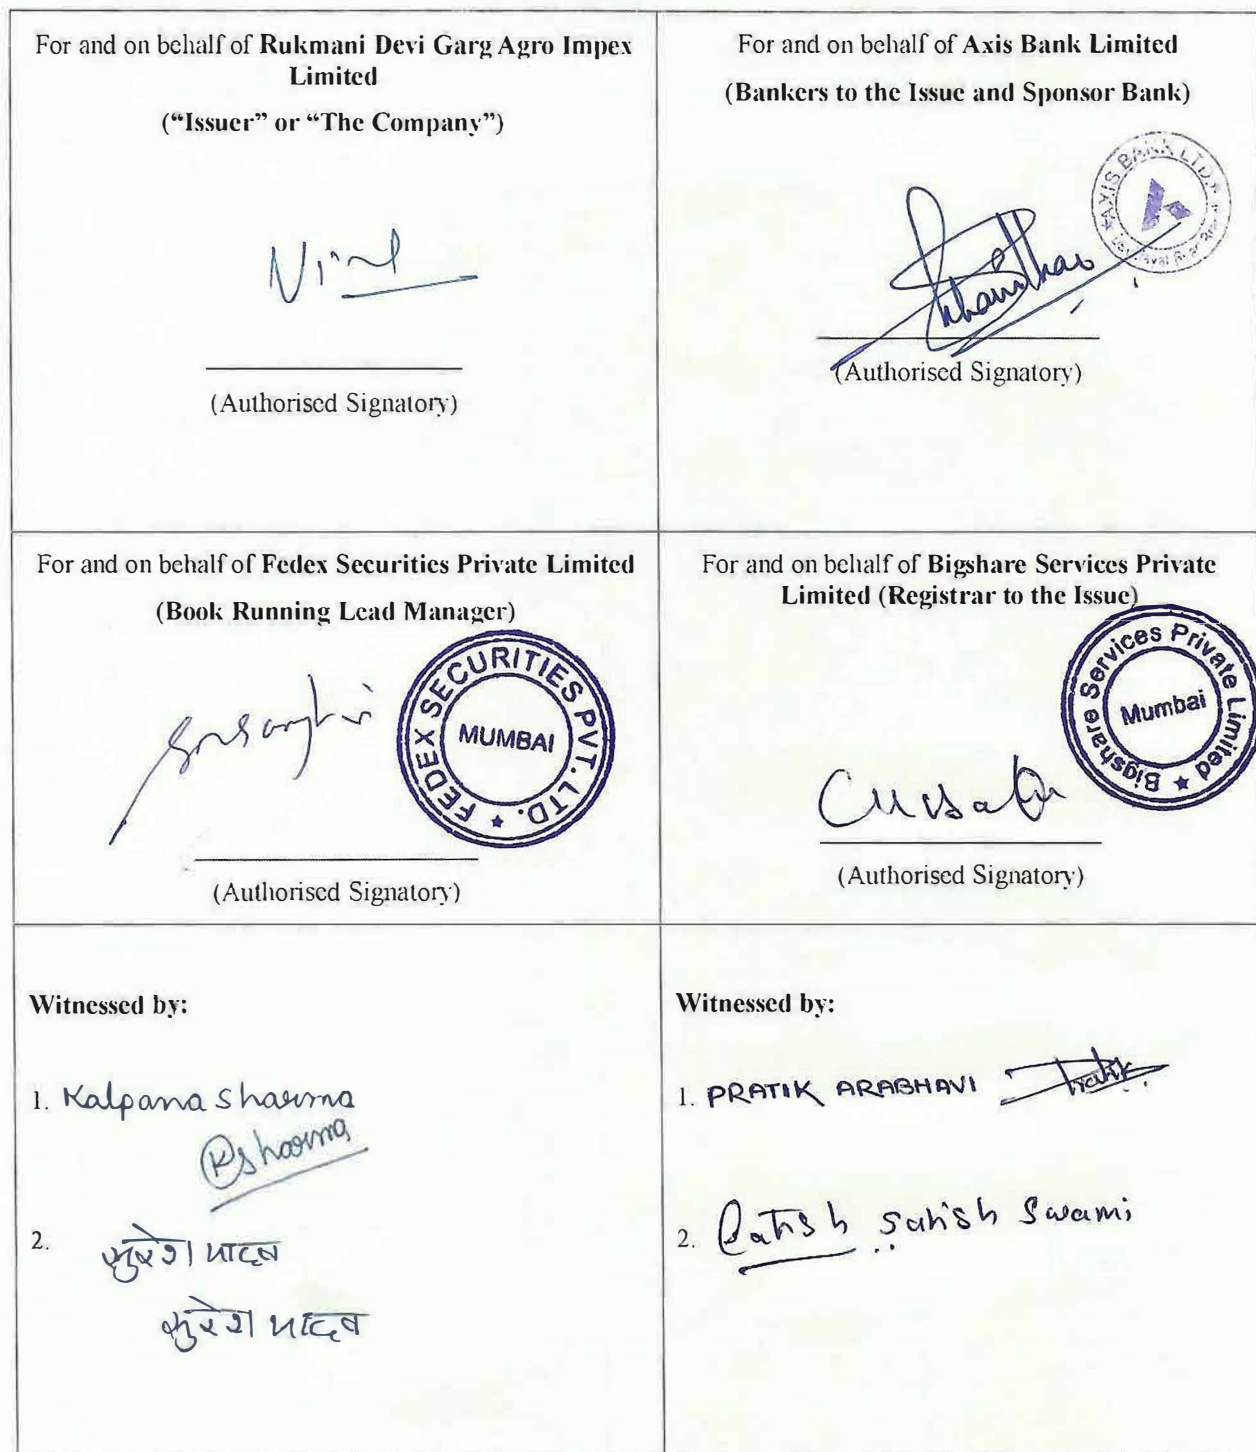 For and on behalf of Rukmani Devi Garg Agro Impex
Limited
("Issuer" or "The Company")
(Authorised Signatory)
For and on behalf of Axis Bank Limited
(Bankers to the Issue and Sponsor Bank)
AXIS BANK LTD
(Authorised Signatory)
For and on behalf of Fedex Securities Private Limited
(Book Running Lead Manager)
FEDEX SECURITIES PVT. LTD.
MUMBAI
(Authorised Signatory)
For and on behalf of Bigshare Services Private
Limited (Registrar to the Issue)
Bigshare Services Private Limited
Mumbai
(Authorised Signatory)
Witnessed by:
1. Kalpana Sharma
KSharma
2. सुरेश यादव
सुरेश यादव
Witnessed by:
1. PRATIK ARABHAVI Pratik
2. Satish Satish Swami